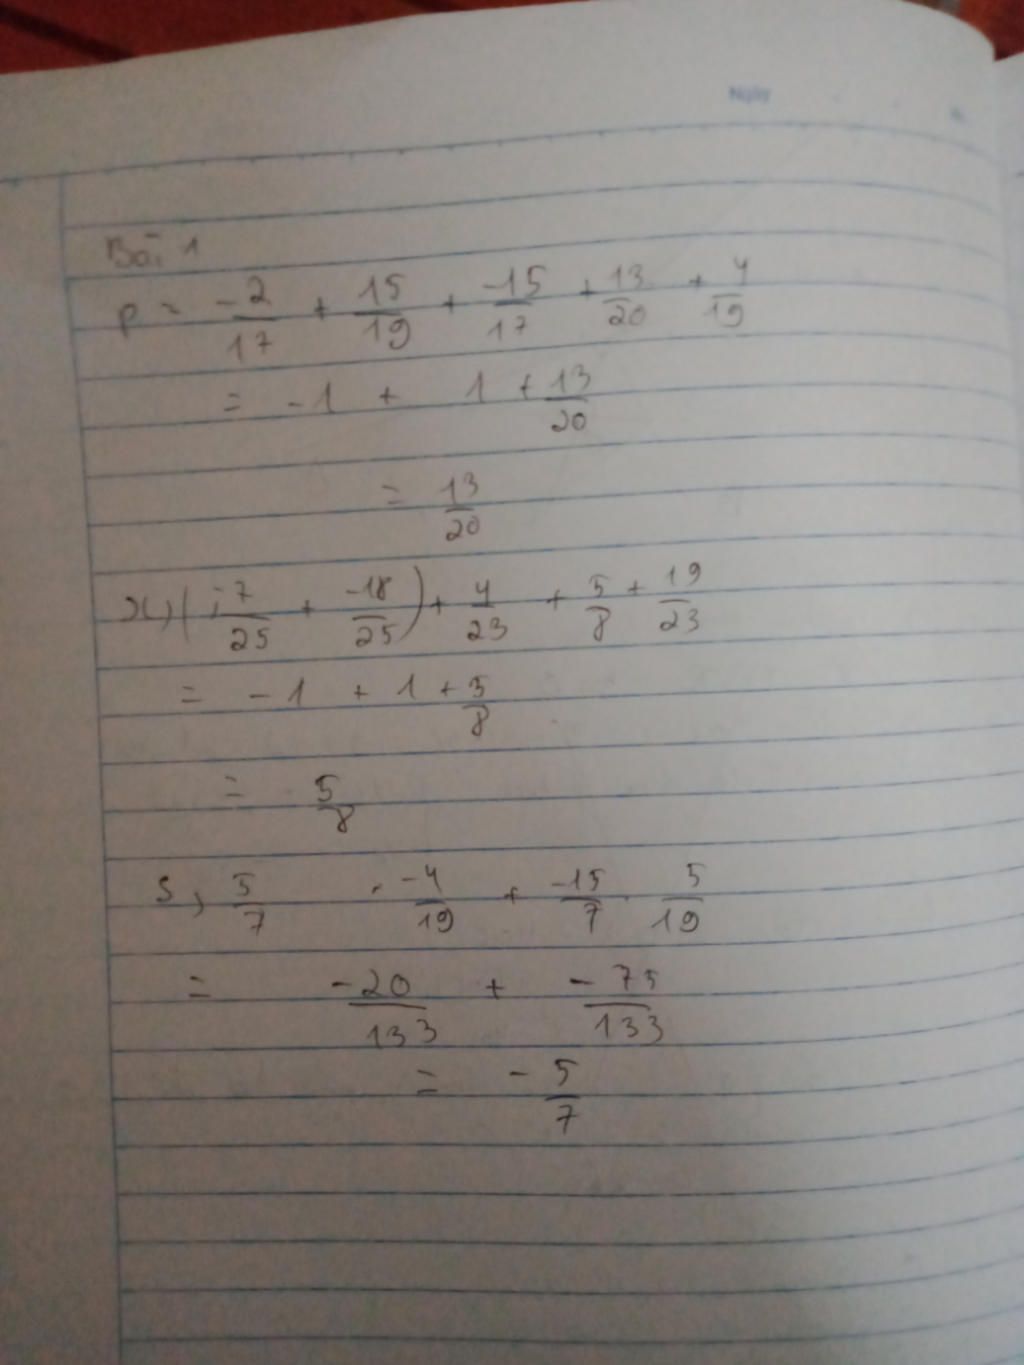 Ngày
Bài 1
P = -2/17 + 15/19 + -15/17 + 13/20 + 4/19
= -1 + 1 + 13/20
= 13/20
x) (-7/25 + -18/25) + 4/23 + 5/8 + 19/23
= -1 + 1 + 5/8
= 5/8
S, 5/7 . -4/19 + -15/7 . 5/19
= -20/133 + -75/133
= -5/7